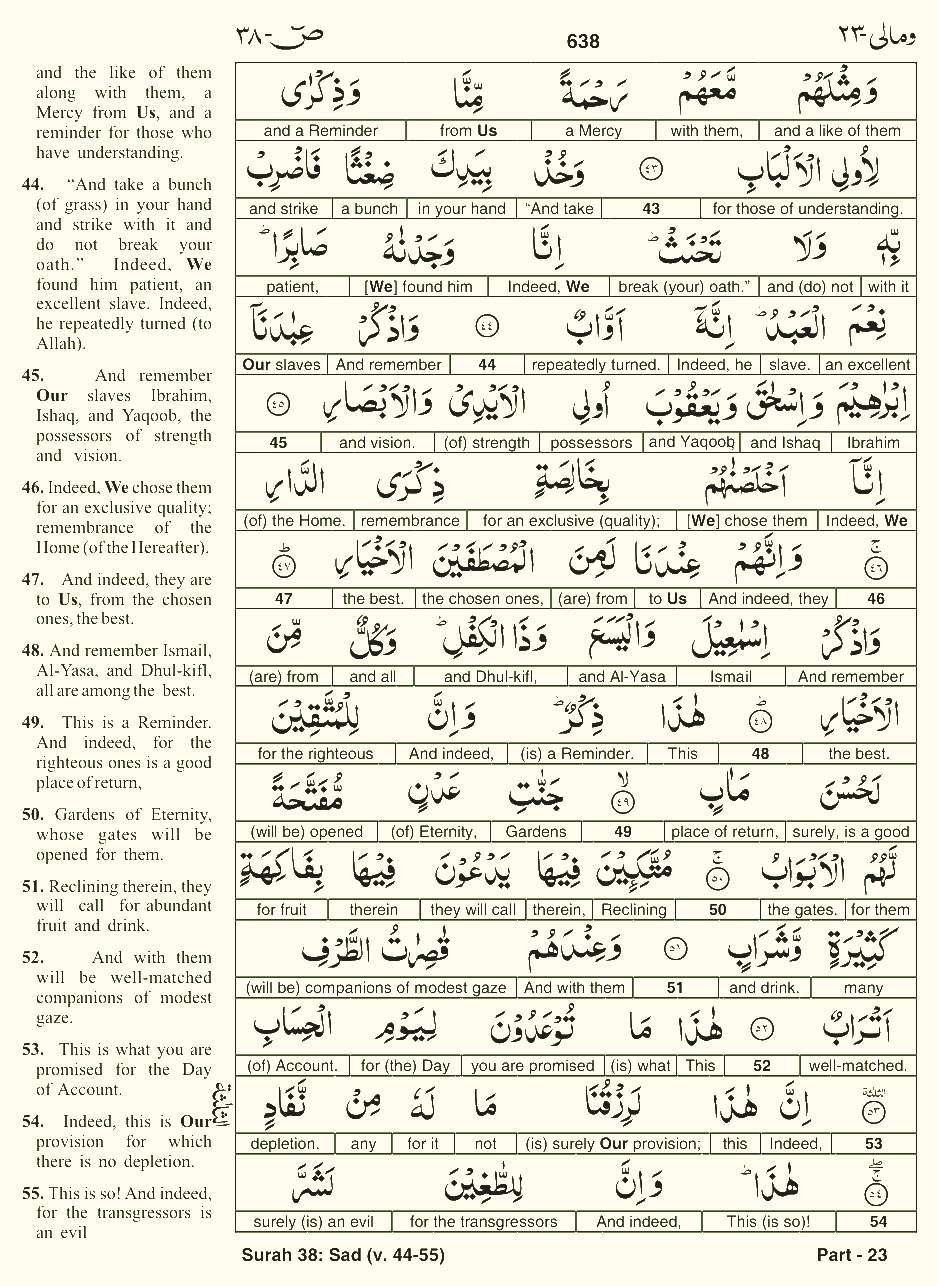 صٓ-٣٨ 638 ومالى-٢٣
and the like of them
along with them, a
Mercy from Us, and a
reminder for those who
have understanding.
44. “And take a bunch
(of grass) in your hand
and strike with it and
do not break your
oath.” Indeed, We
found him patient, an
excellent slave. Indeed,
he repeatedly turned (to
Allah).
45. And remember
Our slaves Ibrahim,
Ishaq, and Yaqoob, the
possessors of strength
and vision.
46. Indeed, We chose them
for an exclusive quality;
remembrance of the
Home (of the Hereafter).
47. And indeed, they are
to Us, from the chosen
ones, the best.
48. And remember Ismail,
Al-Yasa, and Dhul-kifl,
all are among the best.
49. This is a Reminder.
And indeed, for the
righteous ones is a good
place of return,
50. Gardens of Eternity,
whose gates will be
opened for them.
51. Reclining therein, they
will call for abundant
fruit and drink.
52. And with them
will be well-matched
companions of modest
gaze.
53. This is what you are
promised for the Day
of Account.
54. Indeed, this is Our
provision for which
there is no depletion.
55. This is so! And indeed,
for the transgressors is
an evil
وَمِثْلَهُمْ مَّعَهُمْ رَحْمَةً مِّنَّا وَذِكْرٰى
and a Reminder from Us a Mercy with them, and a like of them
لِاُولِى الْاَلْبَابِ ٤٣ وَخُذْ بِيَدِكَ ضِغْثًا فَاضْرِبْ
and strike a bunch in your hand “And take 43 for those of understanding.
بِّهٖ وَلَا تَحْنَثْ ؕ اِنَّا وَجَدْنٰهُ صَابِرًا ؕ
patient, [We] found him Indeed, We break (your) oath.” and (do) not with it
نِعْمَ الْعَبْدُ ؕ اِنَّهٗٓ اَوَّابٌ ٤٤ وَاذْكُرْ عِبٰدَنَآ
Our slaves And remember 44 repeatedly turned. Indeed, he slave. an excellent
اِبْرٰهِيْمَ وَاِسْحٰقَ وَيَعْقُوْبَ اُولِى الْاَيْدِىْ وَالْاَبْصَارِ ٤٥
45 and vision. (of) strength possessors and Yaqoob and Ishaq Ibrahim
اِنَّآ اَخْلَصْنٰهُمْ بِخَالِصَةٍ ذِكْرَى الدَّارِ
(of) the Home. remembrance for an exclusive (quality); [We] chose them Indeed, We
٤٦ ۚ وَاِنَّهُمْ عِنْدَنَا لَمِنَ الْمُصْطَفَيْنَ الْاَخْيَارِ ٤٧ ؕ
47 the best. the chosen ones, (are) from to Us And indeed, they 46
وَاذْكُرْ اِسْمٰعِيْلَ وَالْيَسَعَ وَذَا الْكِفْلِ ؕ وَكُلٌّ مِّنَ
(are) from and all and Dhul-kifl, and Al-Yasa Ismail And remember
الْاَخْيَارِ ٤٨ ؕ هٰذَا ذِكْرٌ ؕ وَاِنَّ لِلْمُتَّقِيْنَ
for the righteous And indeed, (is) a Reminder. This 48 the best.
لَحُسْنَ مَاٰبٍ ٤٩ ۙ جَنّٰتِ عَدْنٍ مُّفَتَّحَةً
(will be) opened (of) Eternity, Gardens 49 place of return, surely, is a good
لَّهُمُ الْاَبْوَابُ ٥٠ ۚ مُتَّكِـِٕيْنَ فِيْهَا يَدْعُوْنَ فِيْهَا بِفَاكِهَةٍ
for fruit therein they will call therein, Reclining 50 the gates. for them
كَثِيْرَةٍ وَّشَرَابٍ ٥١ وَعِنْدَهُمْ قٰصِرٰتُ الطَّرْفِ
(will be) companions of modest gaze And with them 51 and drink. many
اَتْرَابٌ ٥٢ هٰذَا مَا تُوْعَدُوْنَ لِيَوْمِ الْحِسَابِ
(of) Account. for (the) Day you are promised (is) what This 52 well-matched.
٥٣ اِنَّ هٰذَا لَرِزْقُنَا مَا لَهٗ مِنْ نَّفَادٍ
depletion. any for it not (is) surely Our provision; this Indeed, 53
٥٤ ۚ هٰذَا ؕ وَاِنَّ لِلطّٰغِيْنَ لَشَرَّ
surely (is) an evil for the transgressors And indeed, This (is so)! 54
Surah 38: Sad (v. 44-55) Part - 23